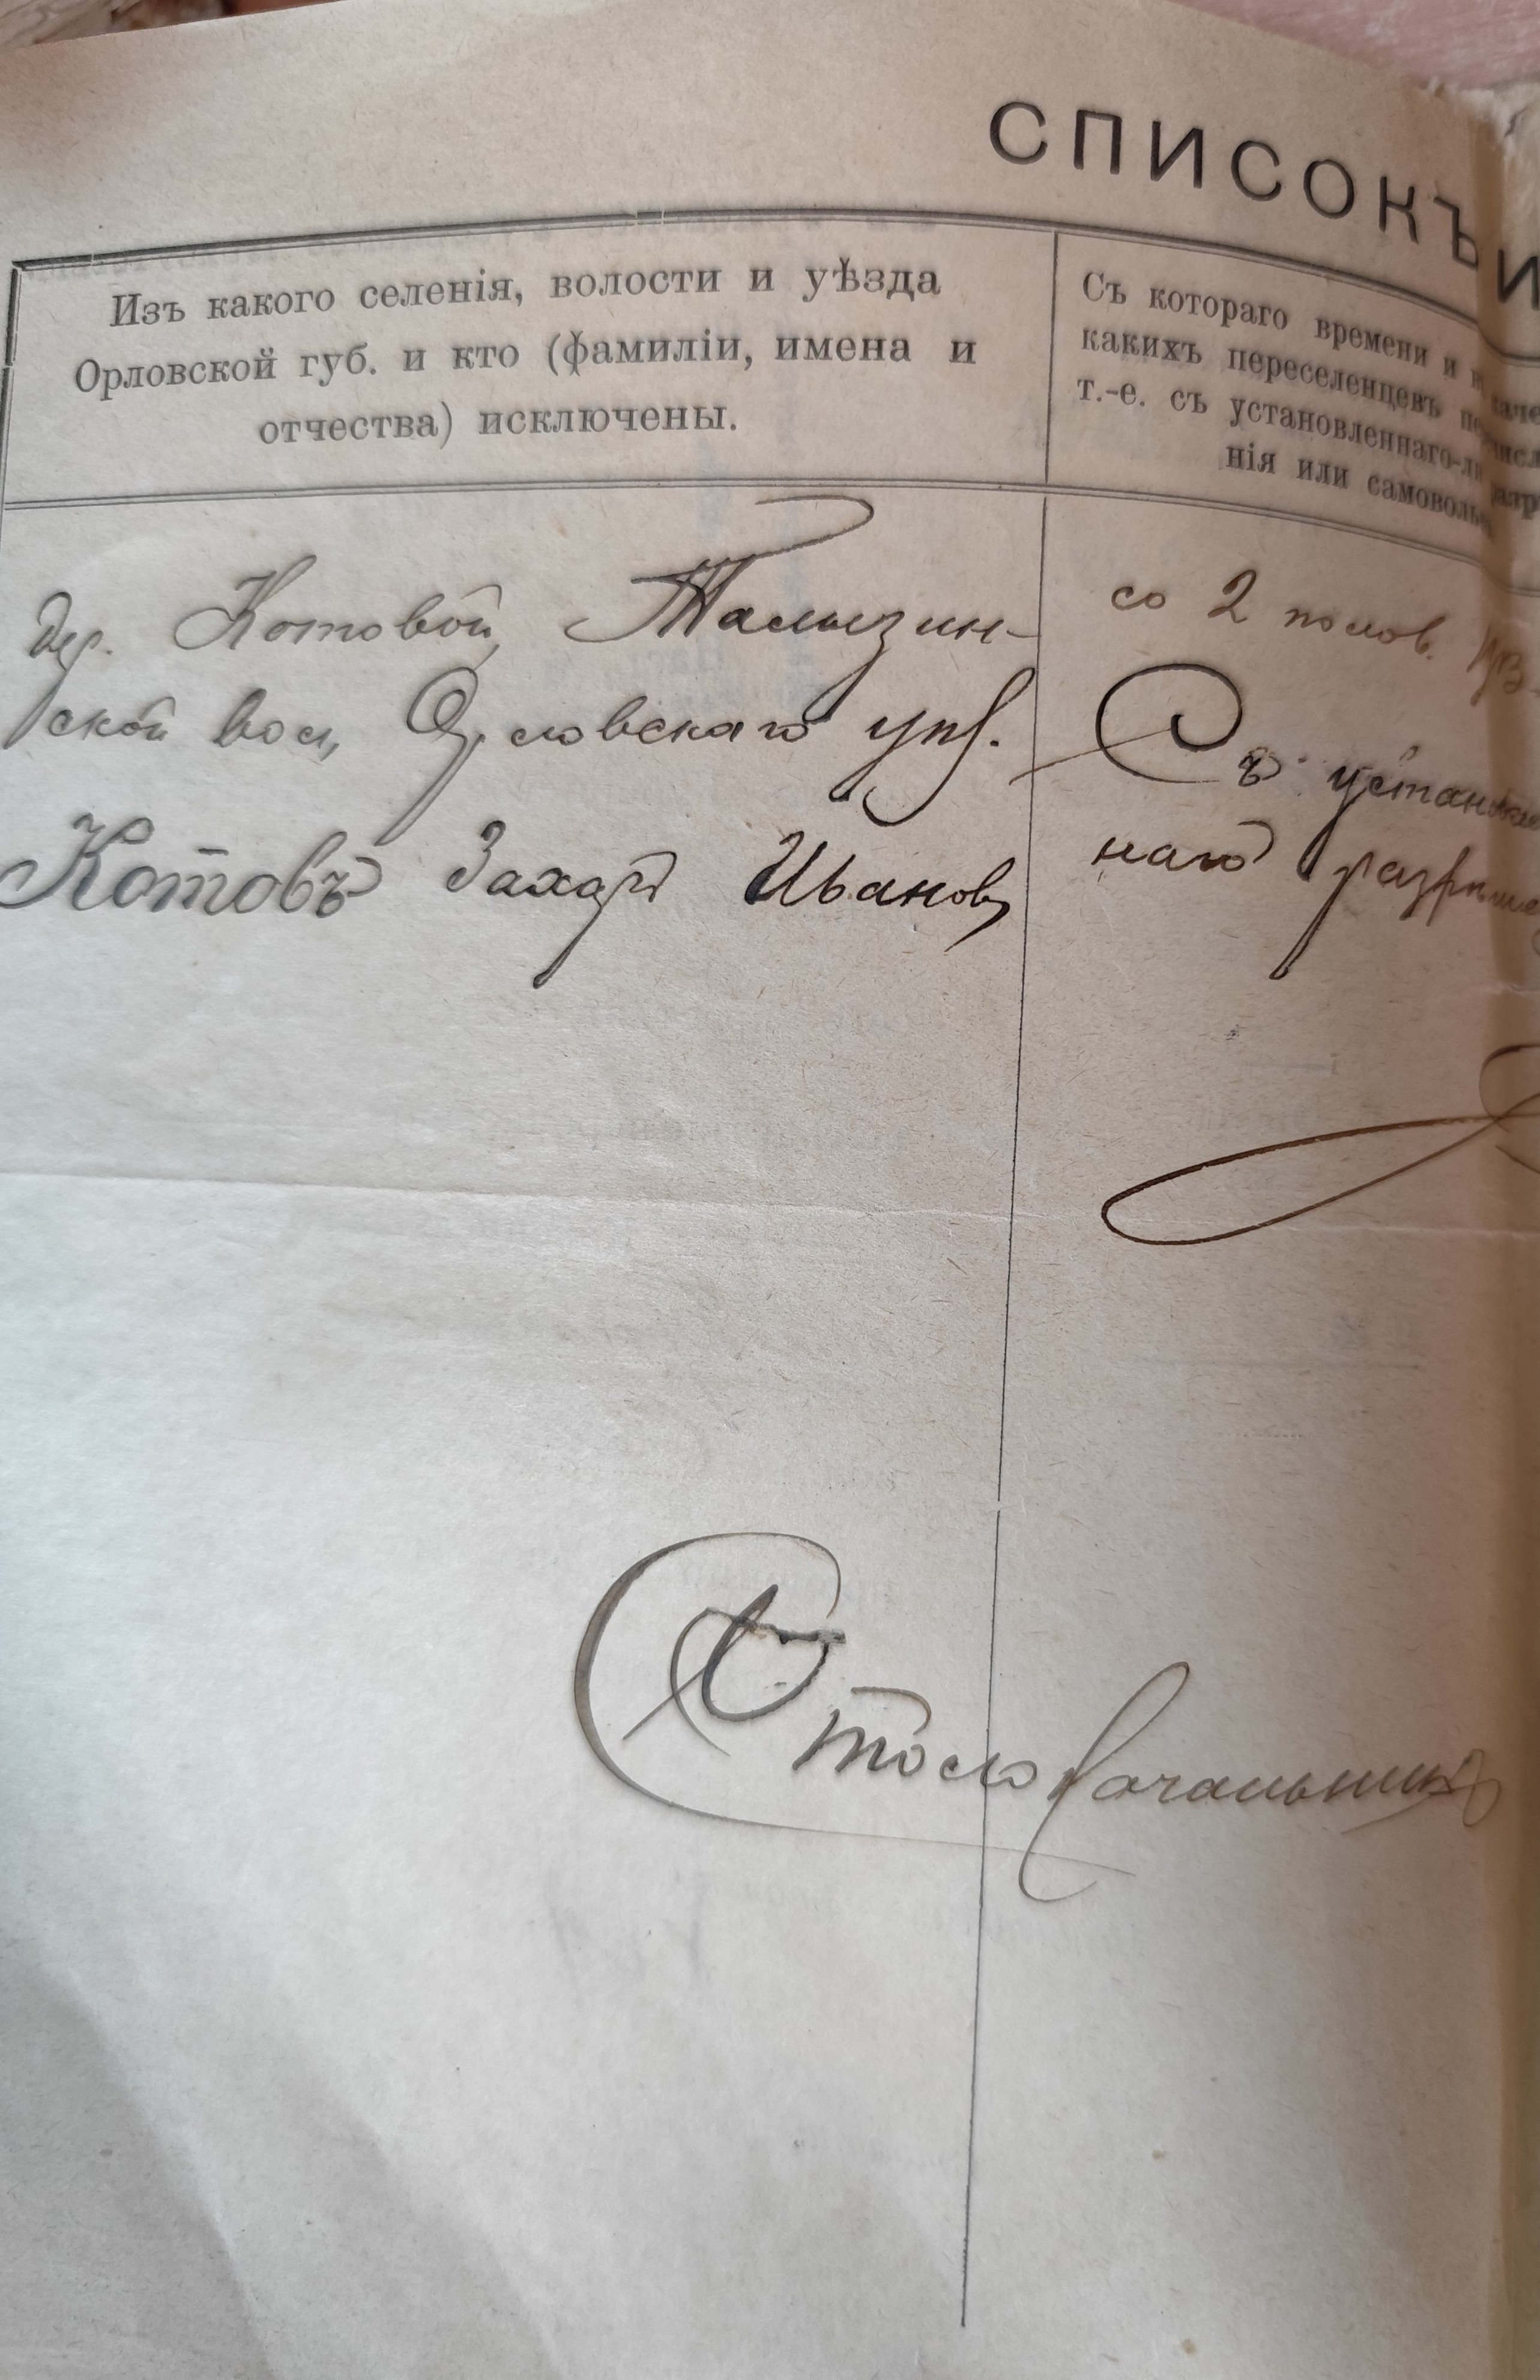 СПИСОКЪ
Изъ какого селенія, волости и уѣзда
Орловской губ. и кто (фамиліи, имена и
отчества) исключены.
Съ котораго времени и въ каче
какихъ переселенцевъ перечисл
т.-е. съ установленнаго-ли разр
нія или самовольн
дер. Котовой, Талызин-
ской вол, Орловскаго уѣз.
Котовъ Захаръ Иванов
со 2 полов.
Съ установлен
наго разрѣше
Столоначальникъ